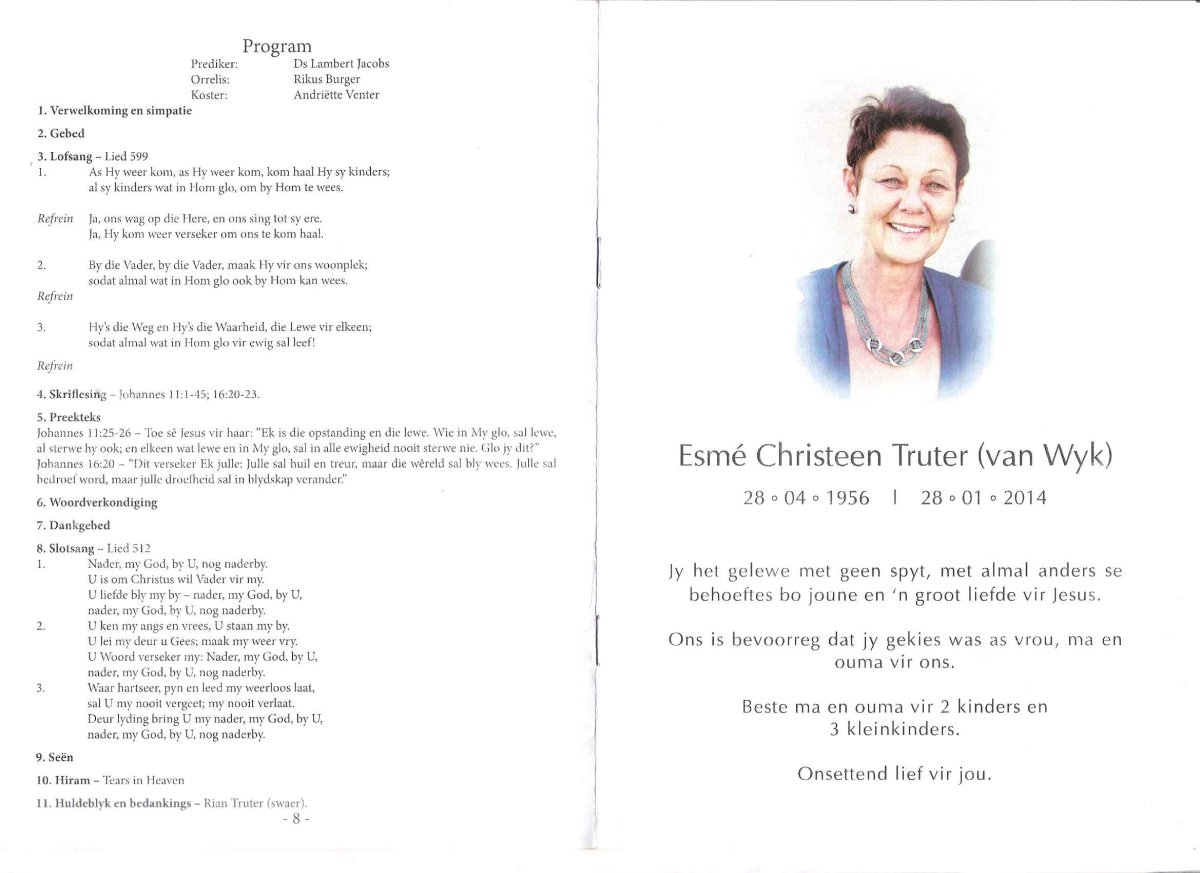 Program
Prediker: Ds Lambert Jacobs
Orrelis: Rikus Burger
Koster: Andriëtte Venter
1. Verwelkoming en simpatie
2. Gebed
3. Lofsang – Lied 599
1. As Hy weer kom, as Hy weer kom, kom haal Hy sy kinders;
al sy kinders wat in Hom glo, om by Hom te wees.
Refrein Ja, ons wag op die Here, en ons sing tot sy ere.
Ja, Hy kom weer verseker om ons te kom haal.
2. By die Vader, by die Vader, maak Hy vir ons woonplek;
sodat almal wat in Hom glo ook by Hom kan wees.
Refrein
3. Hy's die Weg en Hy's die Waarheid, die Lewe vir elkeen;
sodat almal wat in Hom glo vir ewig sal leef!
Refrein
4. Skriflesing – Johannes 11:1-45; 16:20-23.
5. Preekteks
Johannes 11:25-26 – Toe sê Jesus vir haar: “Ek is die opstanding en die lewe. Wie in My glo, sal lewe,
al sterwe hy ook; en elkeen wat lewe en in My glo, sal in alle ewigheid nooit sterwe nie. Glo jy dit?”
Johannes 16:20 – “Dit verseker Ek julle: Julle sal huil en treur, maar die wêreld sal bly wees. Julle sal
bedroef word, maar julle droefheid sal in blydskap verander.”
6. Woordverkondiging
7. Dankgebed
8. Slotsang – Lied 512
1. Nader, my God, by U, nog naderby.
U is om Christus wil Vader vir my.
U liefde bly my by – nader, my God, by U,
nader, my God, by U, nog naderby.
2. U ken my angs en vrees, U staan my by.
U lei my deur u Gees; maak my weer vry.
U Woord verseker my: Nader, my God, by U,
nader, my God, by U, nog naderby.
3. Waar hartseer, pyn en leed my weerloos laat,
sal U my nooit vergeet; my nooit verlaat.
Deur lyding bring U my nader, my God, by U,
nader, my God, by U, nog naderby.
9. Seën
10. Hiram – Tears in Heaven
11. Huldeblyk en bedankings – Rian Truter (swaer).
- 8 -
Esmé Christeen Truter (van Wyk)
28 ∘ 04 ∘ 1956 | 28 ∘ 01 ∘ 2014
Jy het gelewe met geen spyt, met almal anders se
behoeftes bo joune en ‘n groot liefde vir Jesus.
Ons is bevoorreg dat jy gekies was as vrou, ma en
ouma vir ons.
Beste ma en ouma vir 2 kinders en
3 kleinkinders.
Onsettend lief vir jou.